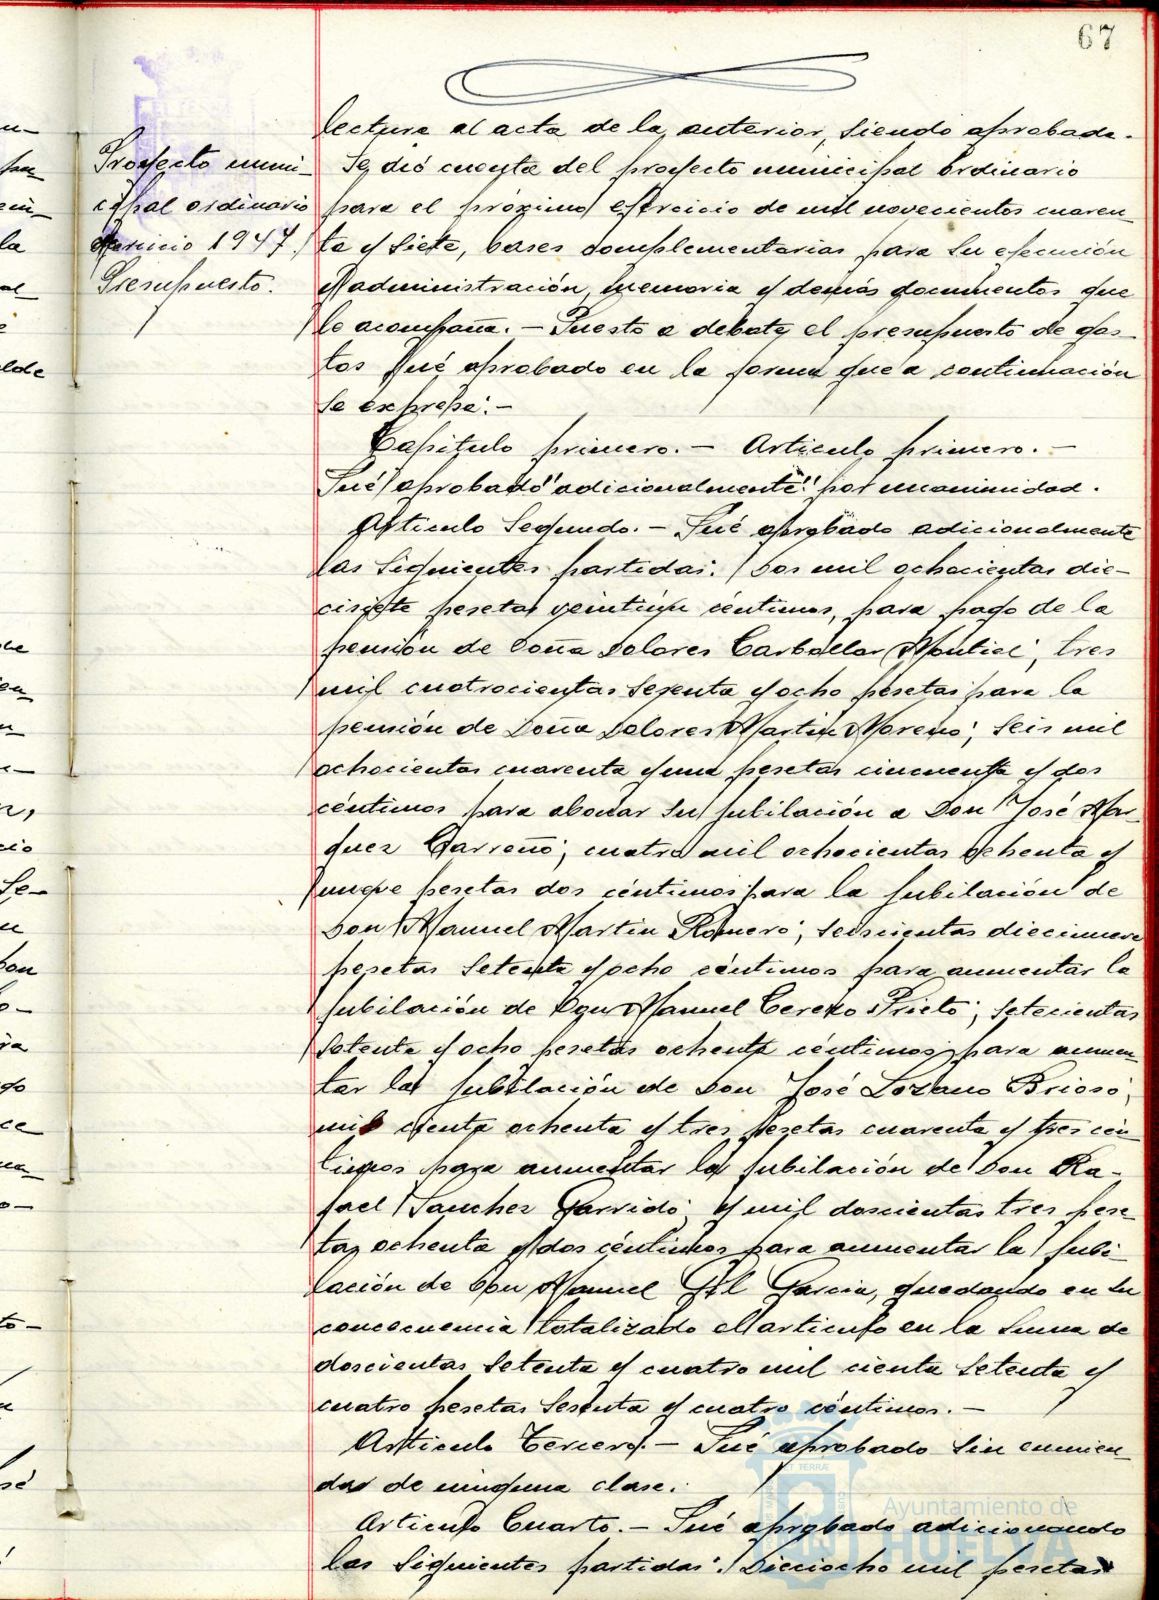 67
Proyecto muni-
cipal ordinario
ejercicio 1947.
Presupuesto.
lectura al acta de la anterior, siendo aprobada.
Se dió cuenta del proyecto municipal ordinario
para el próximo ejercicio de mil novecientos cuaren-
ta y siete, bases complementarias para su ejecución
y administración, memoria y demás documentos que
le acompaña.- Puesto a debate el presupuesto de gas-
tos fué aprobado en la forma que a continuación
se expresa:-
Capitulo primero.- Articulo primero.-
Fué aprobado "adicionalmente" por unanimidad.
Articulo Segundo.- Fué aprobado adicionalmente
las siguientes partidas: Dos mil ochocientas die-
cisiete pesetas céntimos, para pago de la
pensión de Doña Dolores Carballar Montiel; tres
mil cuatrocientas sesenta y ocho pesetas para la
pensión de Doña Dolores Martin Moreno; seis mil
ochocientas cuarenta y una pesetas cincuenta y dos
céntimos para abonar su jubilación a Don José Mar-
quez Carreño; cuatro mil ochocientas ochenta y
nueve pesetas dos céntimos para la jubilación de
Don Manuel Martin Romero; seiscientas diecinueve
pesetas setenta y ocho céntimos para aumentar la
jubilación de Don Manuel Cerezo Prieto; setecientas
setenta y ocho pesetas ochenta céntimos para aumen-
tar la jubilación de Don José Lozano Brioso;
mil ciento ochenta y tres pesetas cuarenta y tres cén-
timos para aumentar la jubilación de Don Ra-
fael Sanchez Garrido; y mil doscientas tres pese-
tas ochenta y dos céntimos para aumentar la jubi-
lación de Don Manuel Gil Garcia, quedando en su
concecuencia totalizado el articulo en la suma de
doscientas setenta y cuatro mil cienta setenta y
cuatro pesetas sesenta y cuatro céntimos.-
Articulo Tercero.- Fué aprobado sin enmien-
das de ninguna clase.
Articulo Cuarto.- Fué aprobado adicionando
las siguientes partidas: Dieciocho mil pesetas
Ayuntamiento de
HUELVA